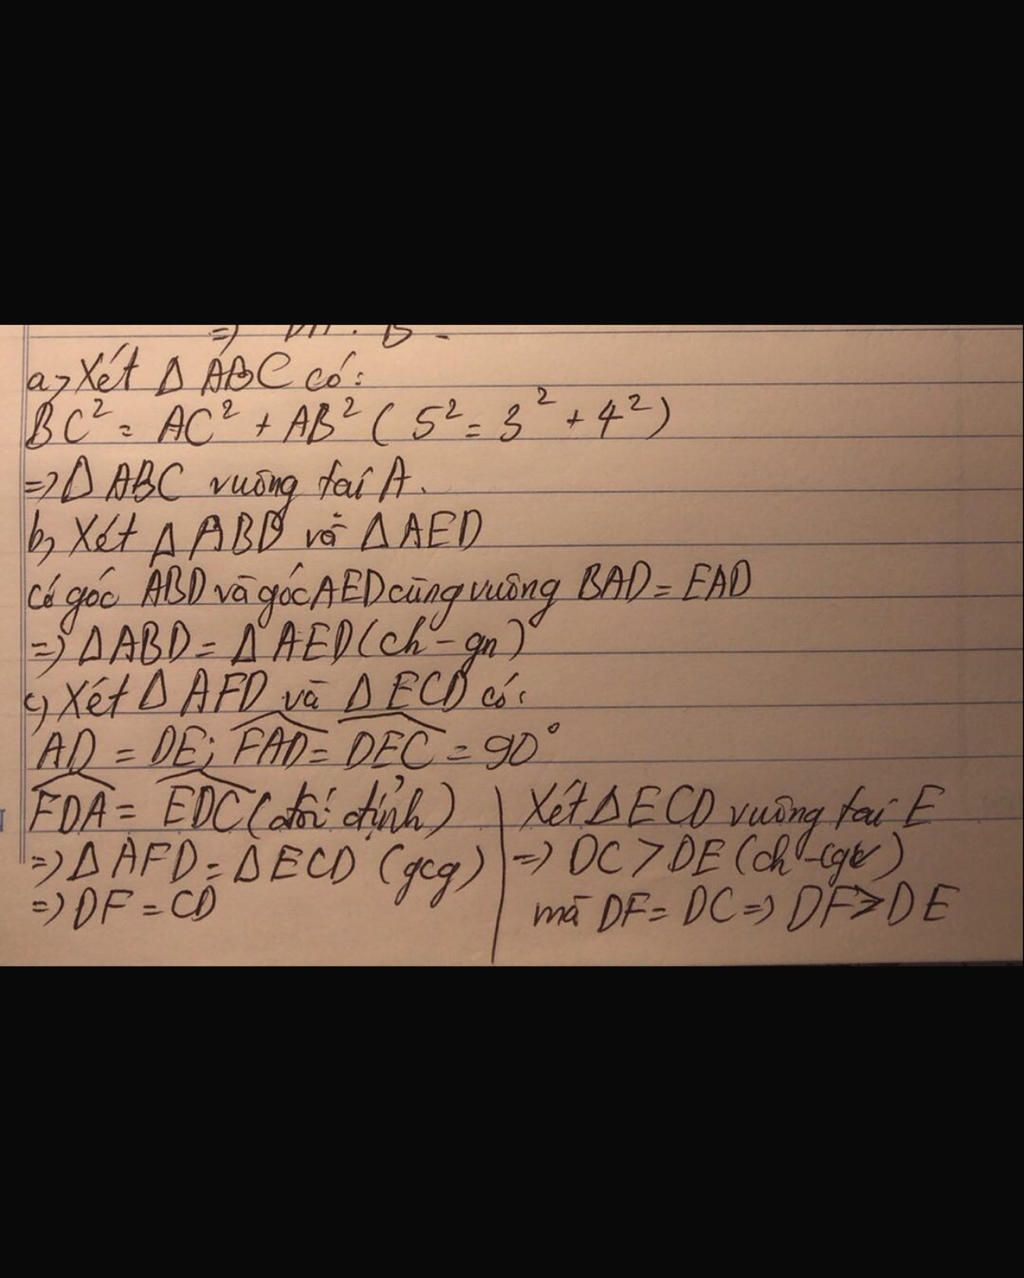 a, Xét Δ ABC có:
BC² = AC² + AB² ( 5² = 3² + 4²)
=> Δ ABC vuông tại A.
b, Xét Δ ABD và Δ AED
có góc ABD và góc AED cùng vuông BAD = EAD
=> Δ ABD = Δ AED (ch - gn)
c, Xét Δ AFD và Δ ECD có:
AD = DE; FAD = DEC = 90°
FDA = EDC (đối đỉnh)
=> Δ AFD = Δ ECD (gcg)
=> DF = CD
Xét Δ ECD vuông tại E
=> DC > DE (ch - cgv)
mà DF = DC => DF > DE